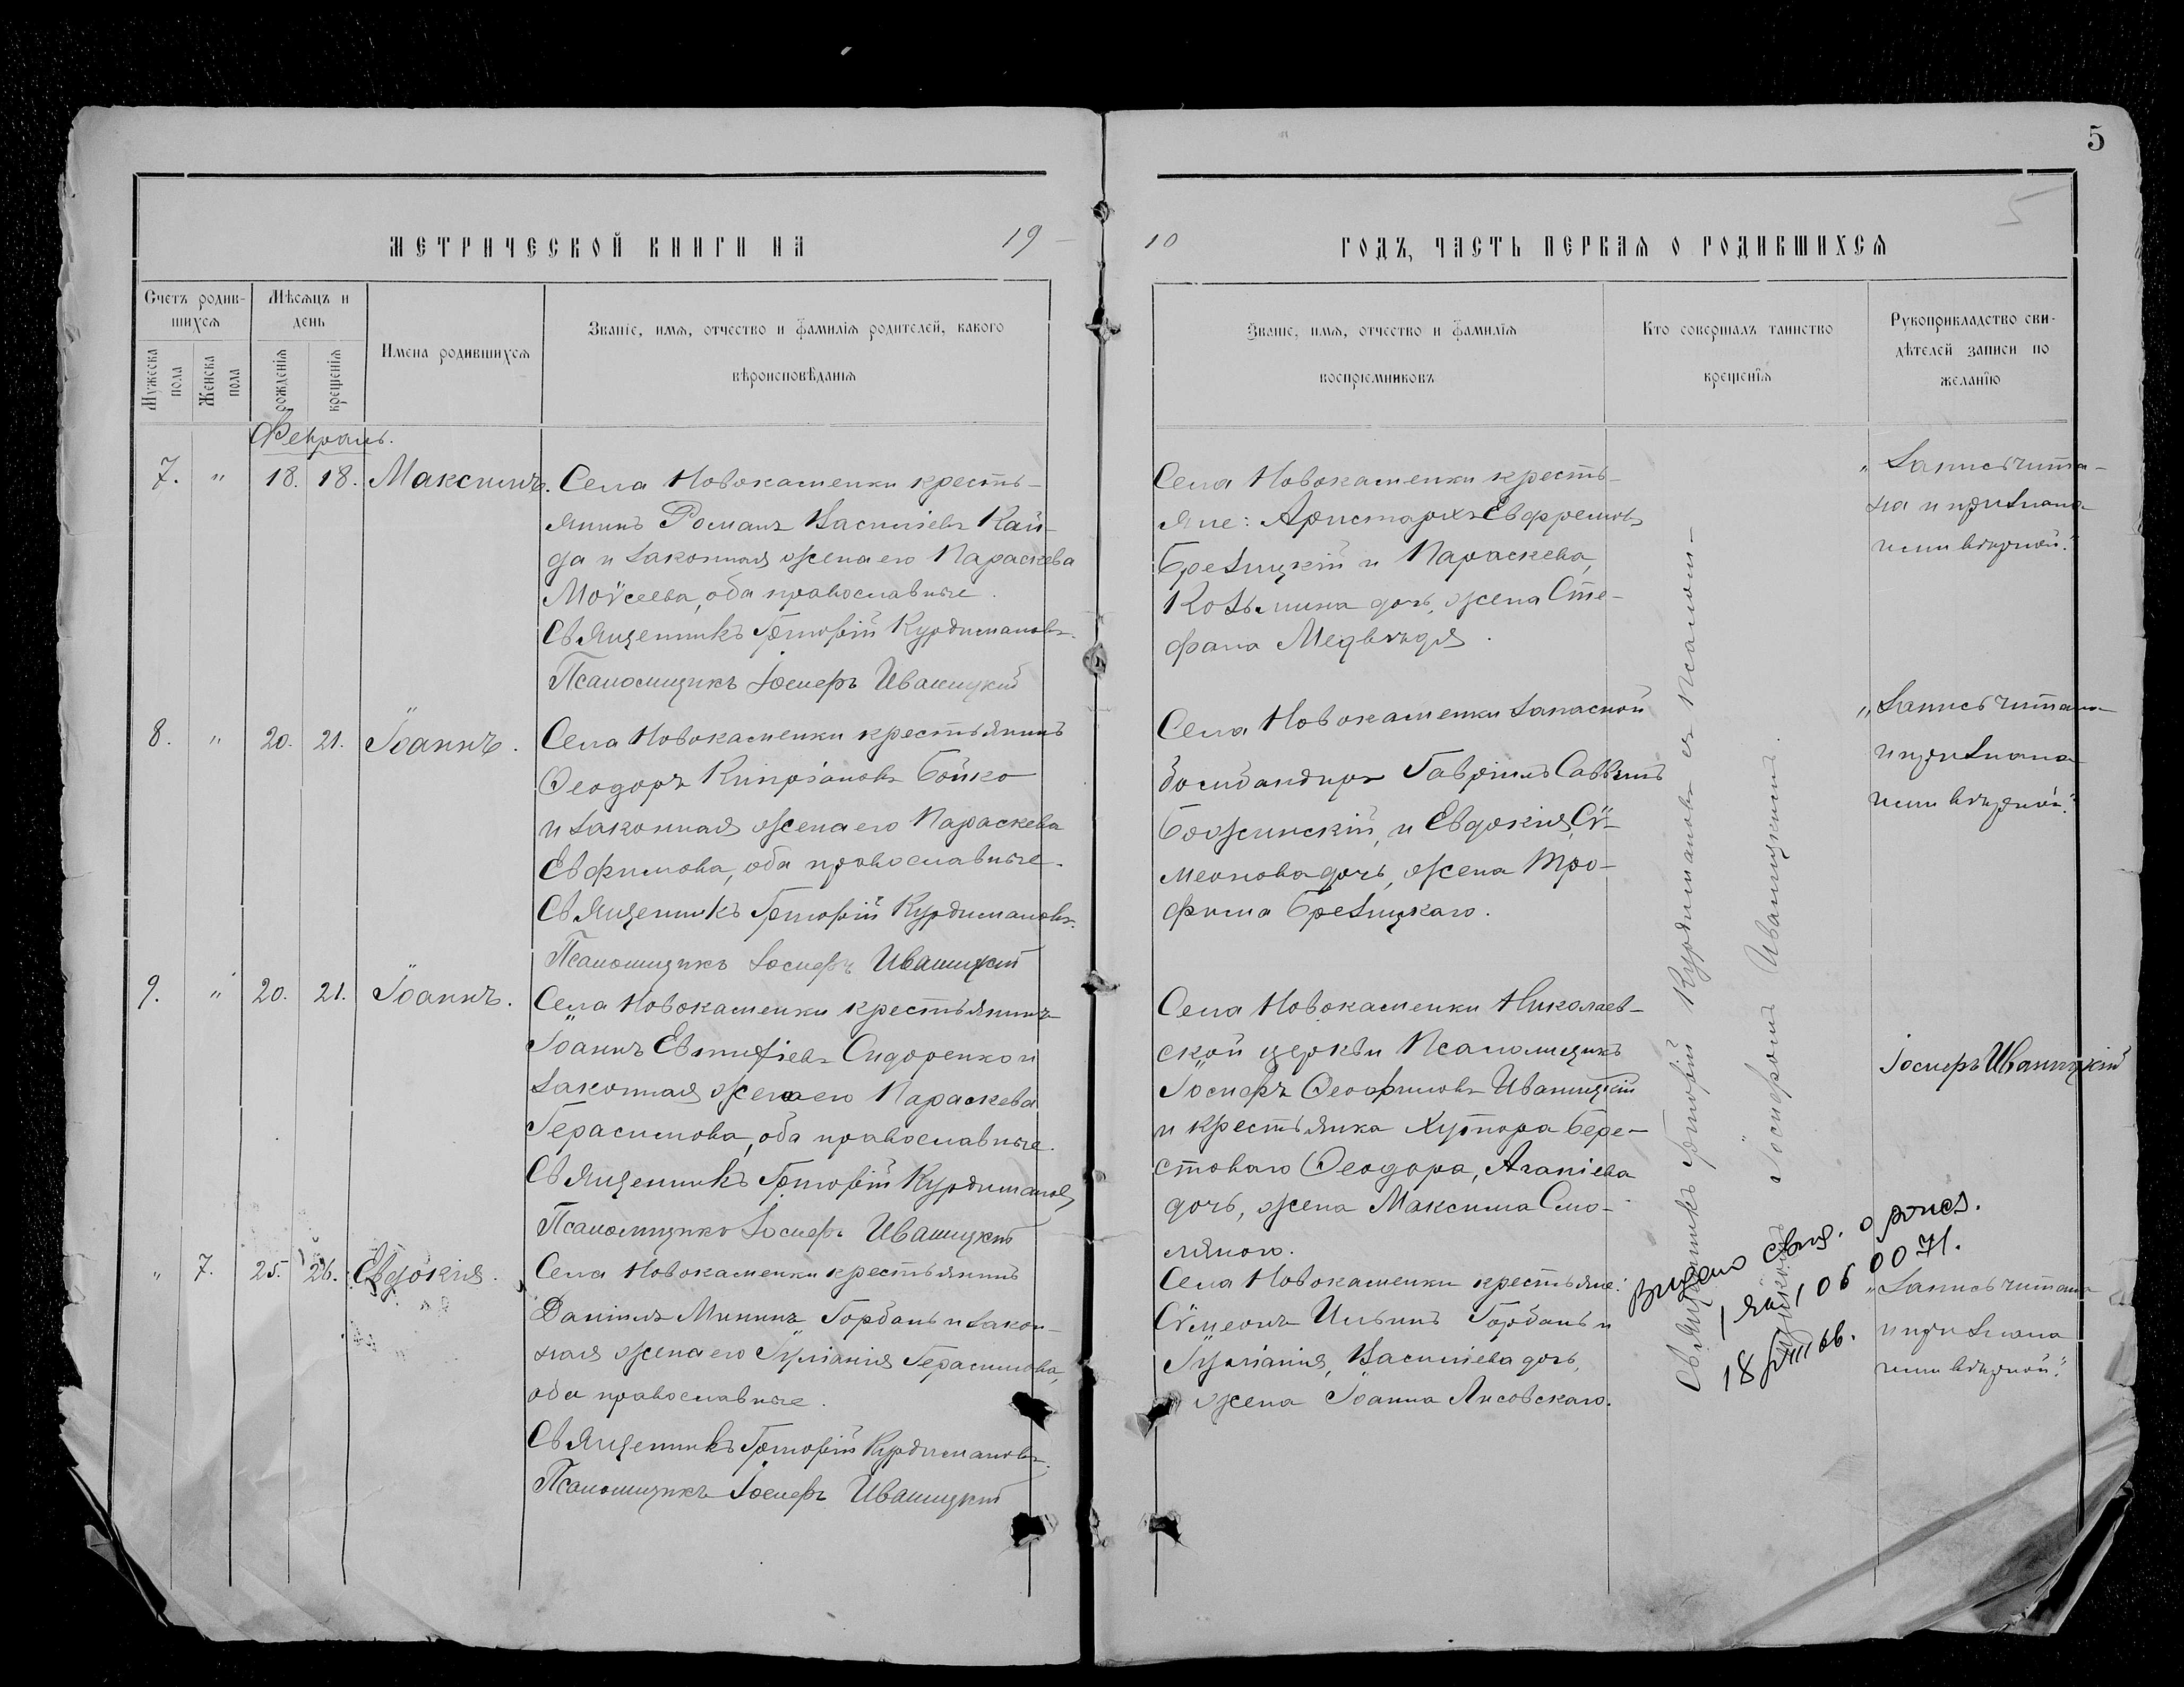 5
5
МЕТРИЧЕСКОЙ КНИГИ НА 19
10 ГОДЪ, ЧАСТЬ ПЕРВАЯ О РОДИВШИХСЯ
Счетъ родив-
шихся
Мужеска пола
Женска пола
Мѣсяцъ и
день
рожденія
крещенія
Имена родившихся
Званіе, имя, отчество и фамилія родителей, какого
вѣроисповѣданія
Званіе, имя, отчество и фамилія
воспріемниковъ
Кто совершалъ таинство
крещенія
Рукоприкладство сви-
дѣтелей записи по
желанію
Февраль.
7. " 18. 18. Максимъ.
Села Новокаменки кресть-
янинъ Романъ Васильевъ Кай-
да и законная жена его Параскева
Моѵсеева, оба православные.
Священникъ Григорій Курдимановъ.
Псаломщикъ Іосифъ Иваницкій
Села Новокаменки кресть-
яне: Аристархъ Евфремовъ
Брезицкій и Параскева,
Козьмина дочь, жена Сте-
фана Медвѣдя.
"Запись чита-
на и признана
нами вѣрной."
8. " 20. 21. Іоаннъ.
Села Новокаменки крестьянинъ
Ѳеодоръ Кипріановъ Бойко
и законная жена его Параскева
Евфимова, оба православные.
Священникъ Григорій Курдимановъ.
Псаломщикъ Іосифъ Иваницкій
Села Новокаменки запасной
бомбандиръ Гавріилъ Саввинъ
Божинскій, и Евдокія, Сѵ-
меонова дочь, жена Тро-
фима Брезицкаго.
"Запись читана
и признана
нами вѣрной."
9. " 20. 21. Іоаннъ.
Села Новокаменки крестьянинъ
Іоаннъ Евтихіевъ Сидоренко и
законная жена его Параскева
Герасимова, оба православные.
Священникъ Григорій Курдимановъ
Псаломщикъ Іосифъ Иваницкій
Села Новокаменки Николаев-
ской церкви Псаломщикъ
Іосифъ Ѳеофиловъ Иваницкій
и крестьянка хутора Бере-
стоваго Ѳеодора, Агапіева
дочь, жена Максима Смо-
лянаго.
Іосифъ Иваницкій
" 7. 25. 26. Евдокія.
Села Новокаменки крестьянинъ
Даніилъ Мининъ Горбань и закон-
ная жена его Іуліанія Герасимова,
оба православные.
Священникъ Григорій Курдимановъ.
Псаломщикъ Іосифъ Иваницкій
Села Новокаменки крестьяне:
Сѵмеонъ Ильинъ Горбань и
Іуліанія, Васильева дочь,
жена Іоанна Лисовскаго.
"Запись читана
и признана
нами вѣрной."
Священникъ Григорій Курдимановъ съ Псалом-
щикомъ Іосифомъ Иваницкимъ.
Выдано свид. о рожд.
060071.